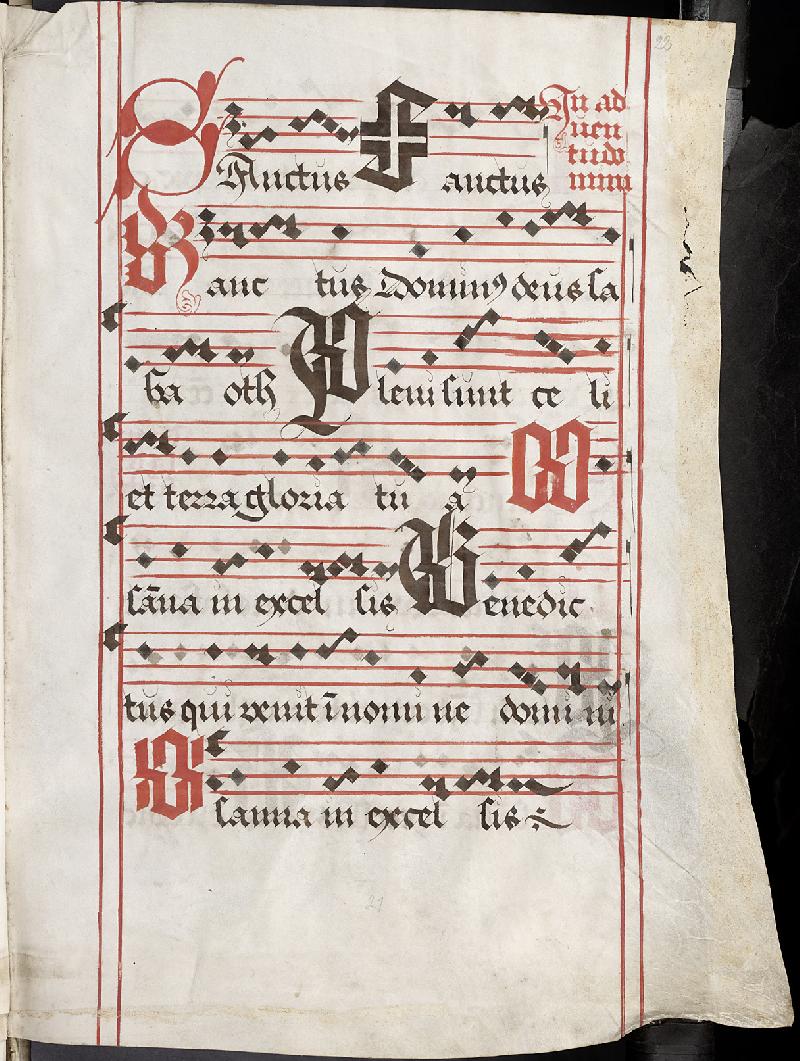 22
SAnctus Sanctus In ad
uen
tudo
mini
Sanc tus Dominus deus sa
ba oth Pleni sunt ce li
et terra gloria tu a O
sāna in excel sis Benedic
tus qui venit ī nomi ne domi ni
Osanna in excel sis
21